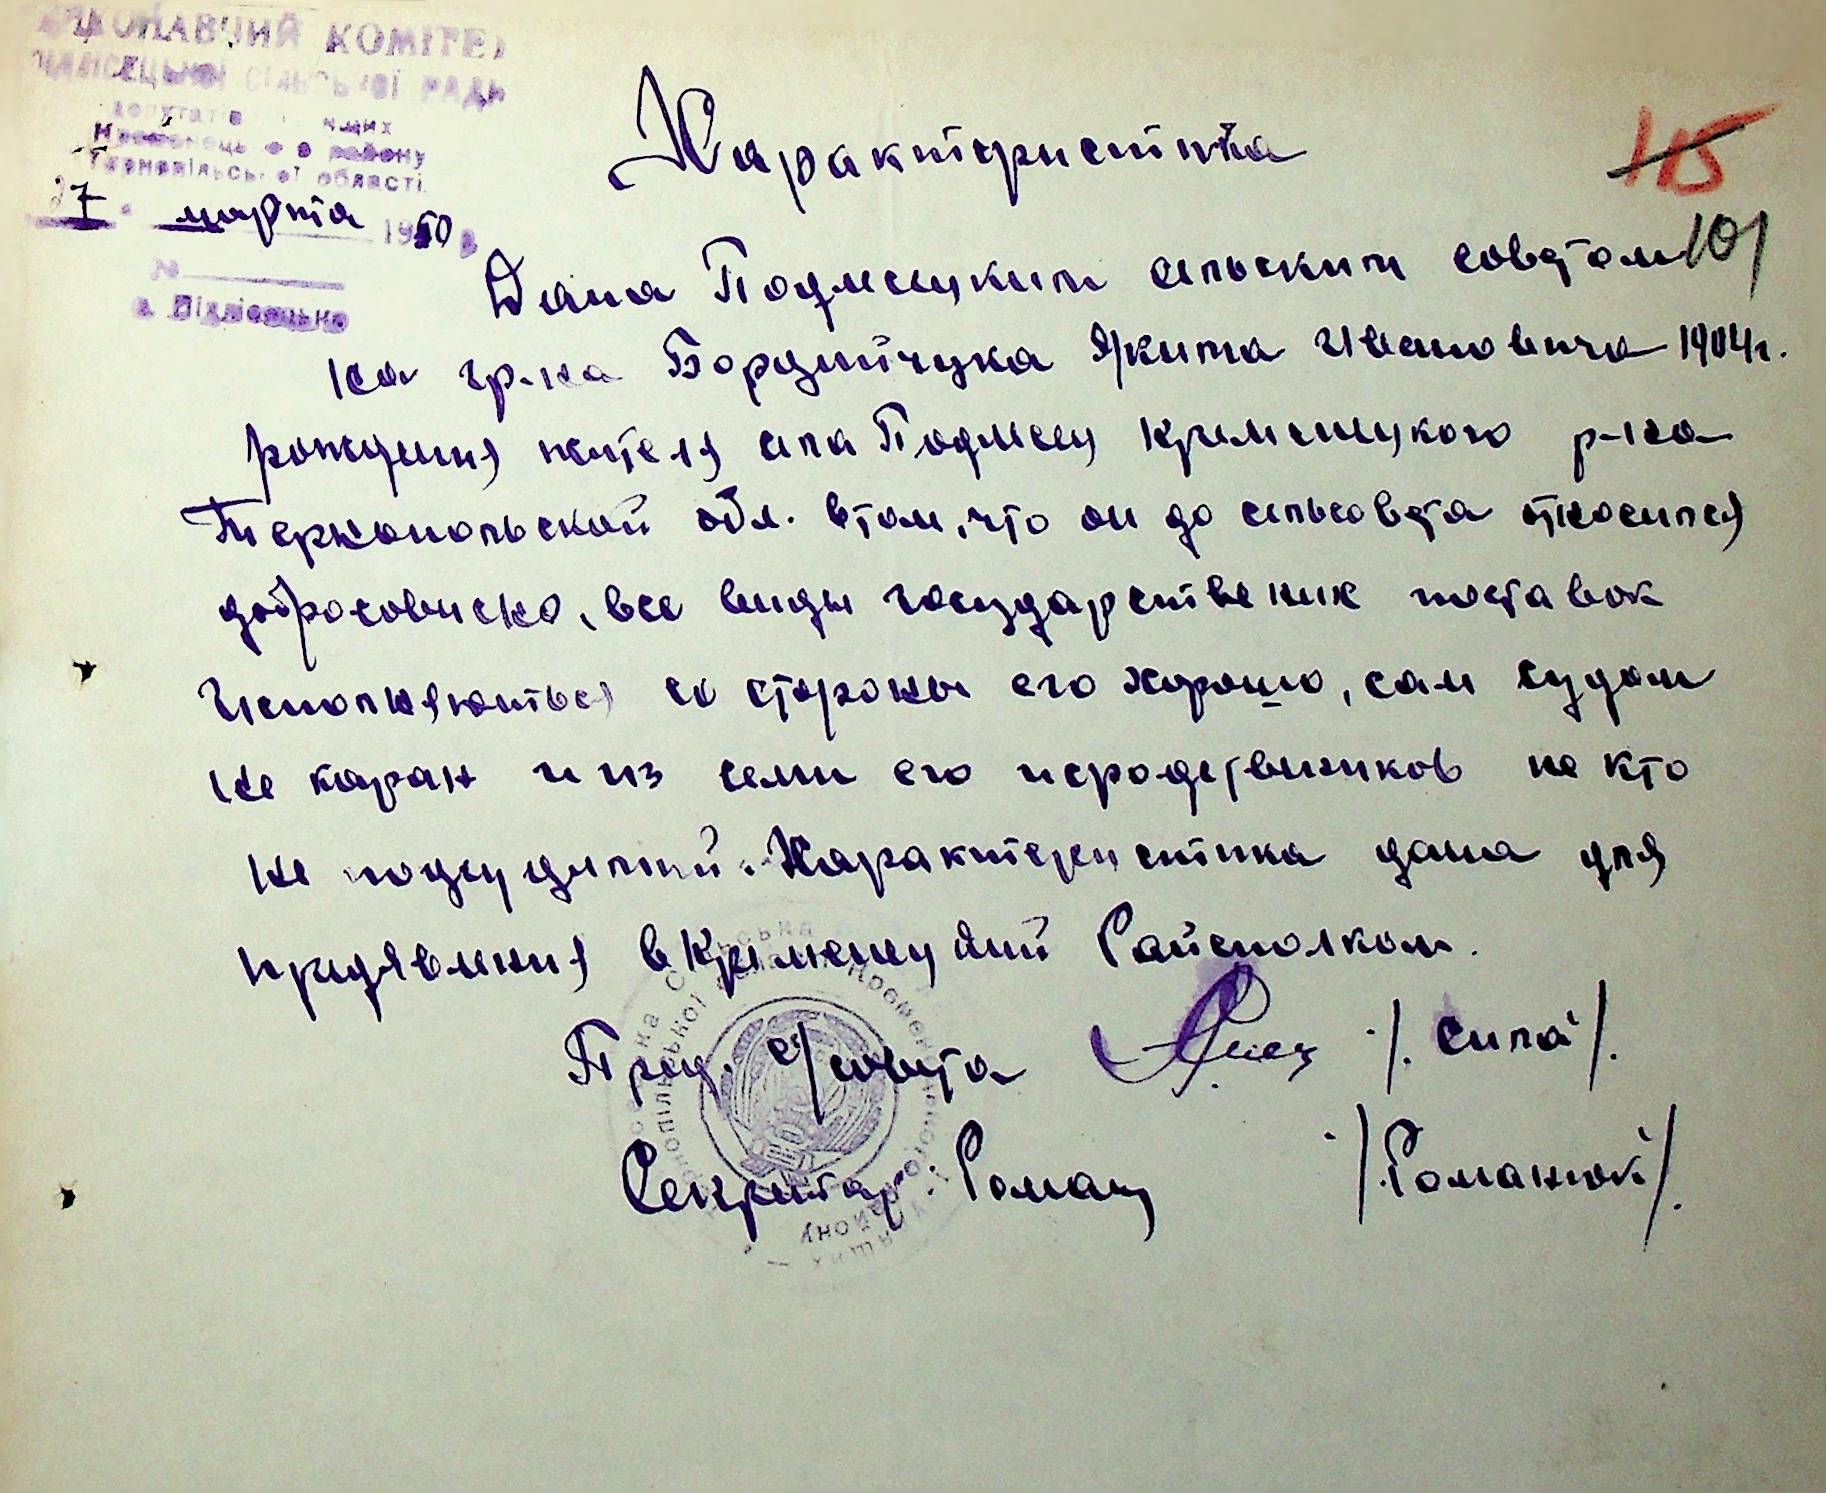 ВИКОНАВЧИЙ КОМІТЕТ
сільської РАДИ
депутатів трудящих
Кременецького району
Тернопільської області
27 марта 1950 р
№
с. Підлісецьке
Характеристика
115
101
Дана Подлесецким сельским советом
на гр-на Бордийчука Якима Ивановича 1904 г.
рождения жителя села Подлесец Кременецкого р-на
Тернопольской обл. втом, что он до сельсовета относился
добросовисно, все виды государственик поставок
исполняються со стороны его хорошо, сам судом
не каран и из семи его иеродствеников не кто
не подсудимый. Характеристика дана для
предявления в Кременецкий Райсполком.
Пред. с/совета /. Сипа /.
Секритар: Романю /. Романюк /.